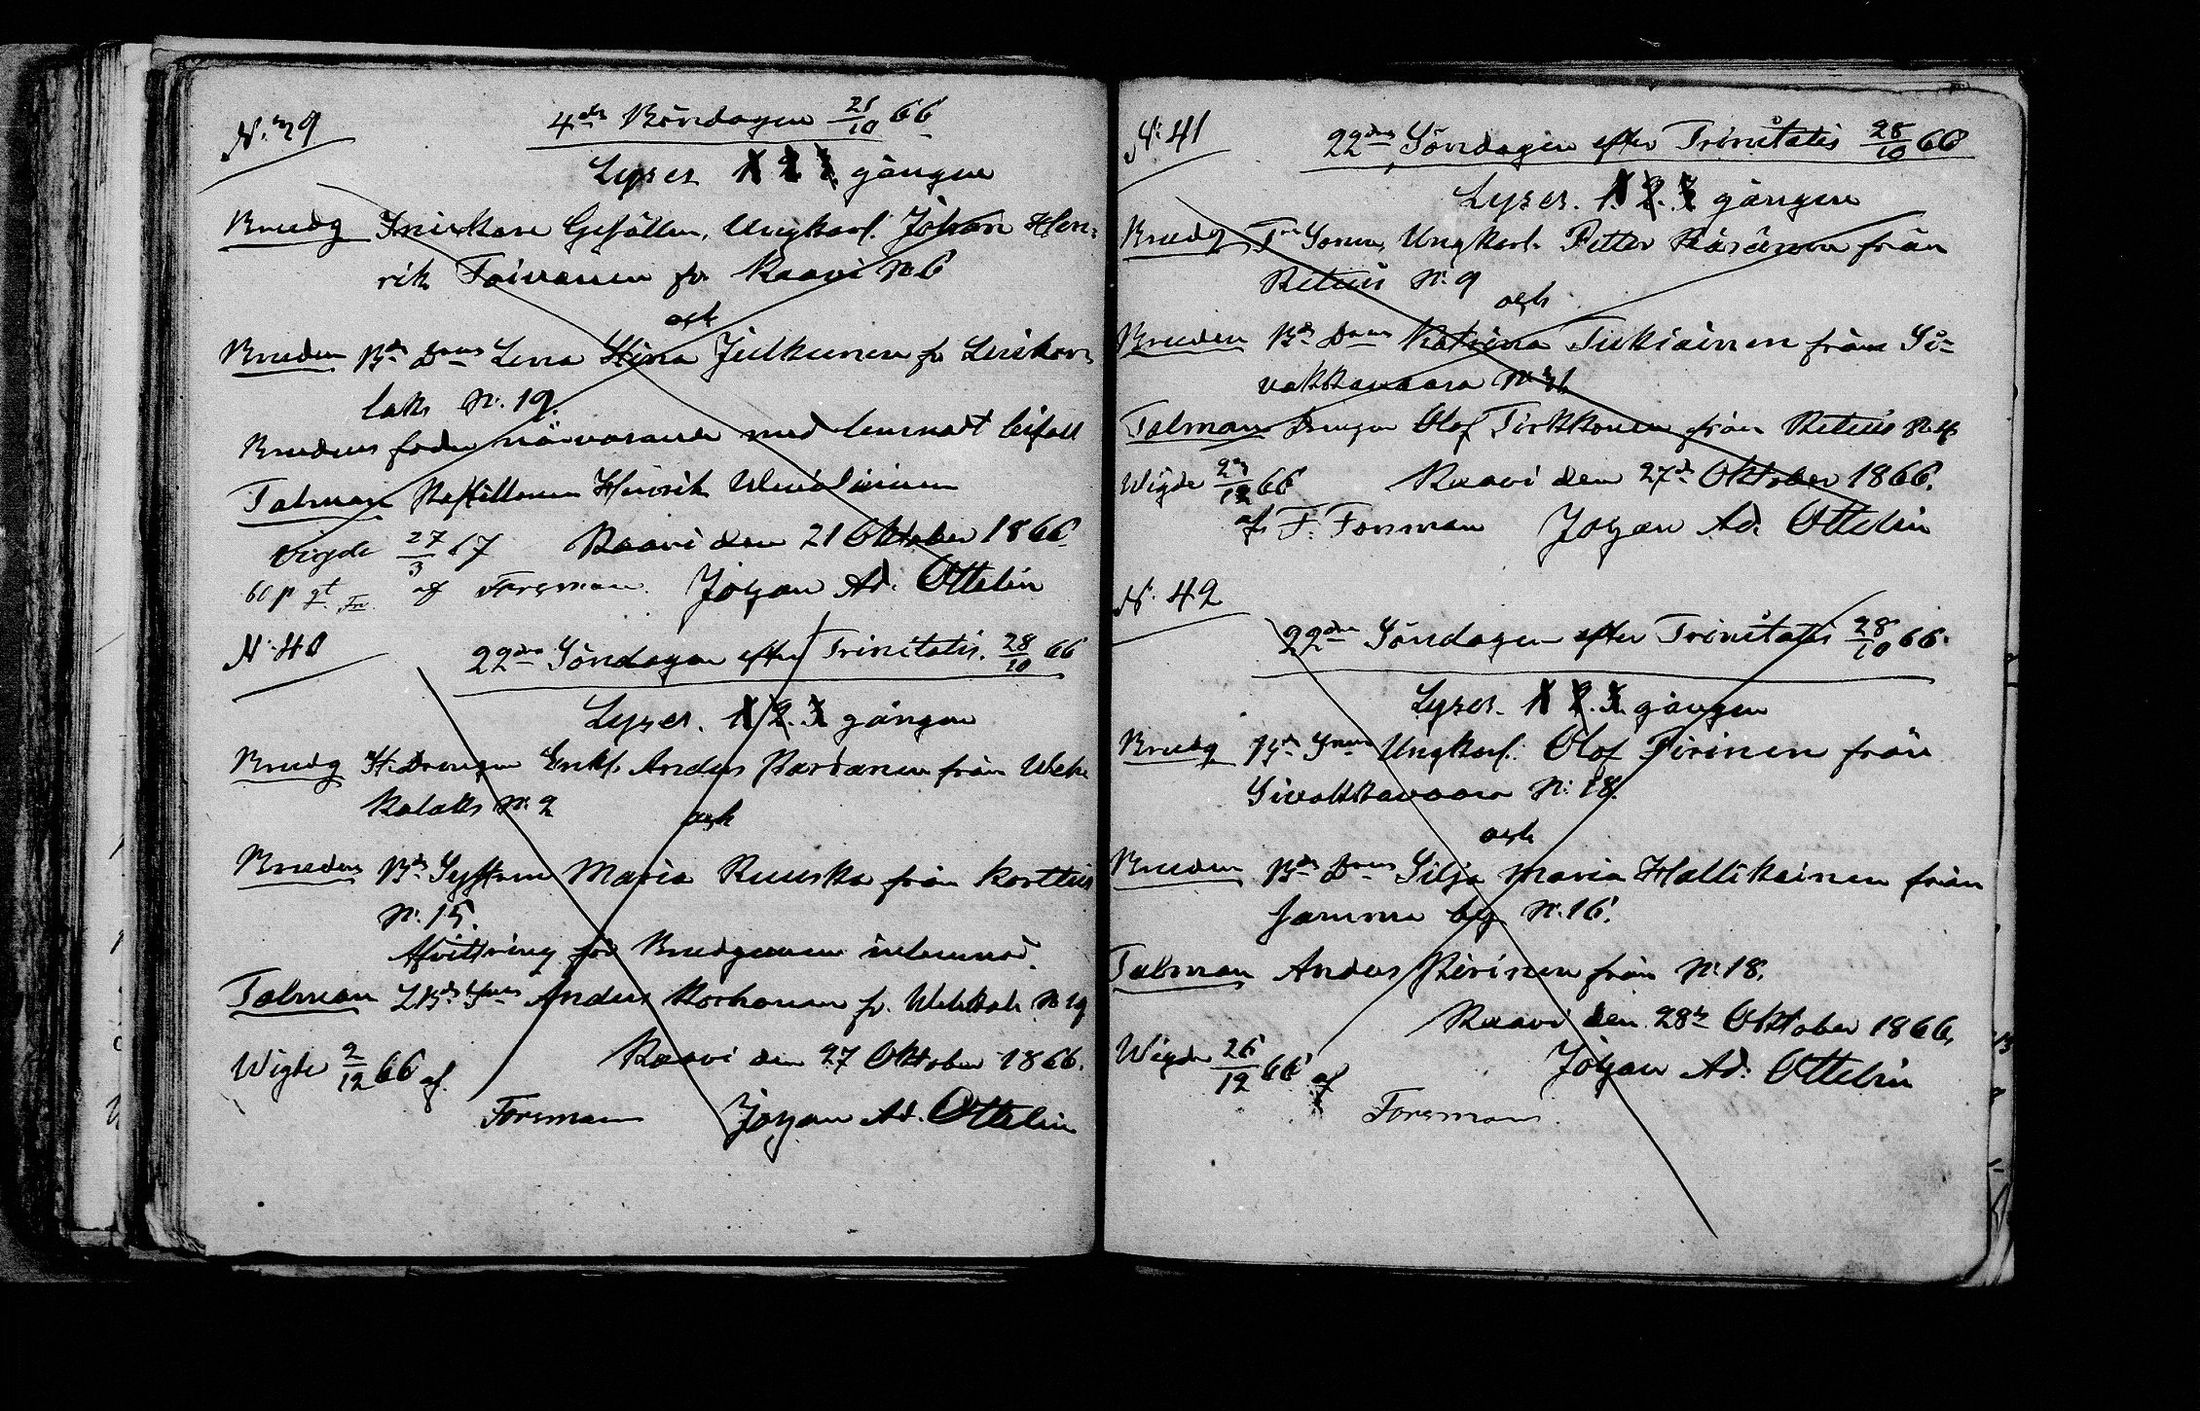 N: 39
4de Böndagen 21/10 66
Lyses 1 2 3 gången
Brudg Snickare Gesällen, Ungkarl. Johan Hen-
rik Toivanen fr. Kaavi N: 6
och
Bruden Bde Dottr Lena Stina Julkunen fr
laks N: 19.
Brudens fader närvarande med lemnadt bifall
Talman Henrik
Vigde 27/3 67 Kaavi den 21 Oktober 1866
60 p gt Fn af Forsman. Johan Ad. Ottelin
N: 40
22dra Söndagen efter Trinitatis. 28/10 66
Lyses. 1 2. 3 gången
Brudg Drengen Enkl. Anders Partanen från Weh-
kalaks N: 2
och
Bruden Bds Maria Ruuska från Korttus
N: 15.
Afvittring för Brudgummen inlemnad
Talman Anders Korhonen fr. N: 19
Wigde 2/12 66 af. Kaavi den 27 Oktober 1866.
Forsman Johan Ad. Ottelin
N: 41
22dra Söndagen efter Trinitatis 28/10 66
Lyses. 1. 2. 3 gången
Brudg Sonen, Ungkarl. Petter Räsänen från
Retuis N: 9
och
Bruden Bds Dottr Katrina Tukiainen från Si-
vakkavaara N: 31
Talman Drengen Olof Tirkkonen från Retuis
Wigde 12 66 Kaavi den 27de Oktober 1866.
af F. Forsman Johan Ad. Ottelin
N: 42
22dra Söndagen efter Trinitatis 28/10 66.
Lyses. 1 2. 3. gången
Brudg Bds Ungkarl. Olof Pirinen från
Sivakkavaara N: 18.
och
Bruden Bds Dottr Silja Maria Hallikainen från
samma by N: 16.
Talman Anders Pirinen från N: 18.
Kaavi den 28de Oktober 1866.
Wigde 26/12 66 af Johan Ad. Ottelin
Forsman.